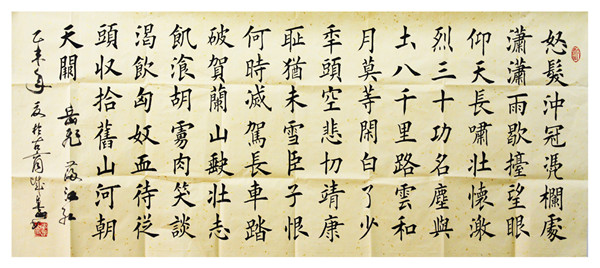 怒髮沖冠凴欄處
瀟瀟雨歇擡望眼
仰天長嘯壯懷激
烈三十功名塵與
土八千里路雲和
月莫等閑白了少
秊頭空悲切靖康
耻猶未雪臣子恨
何時滅駕長車踏
破賀蘭山缺壯志
飢湌胡虜肉笑談
渴飲匈奴血待從
頭収拾舊山河朝
天闕 岳飛 滿江紅
乙未年夏於古商城